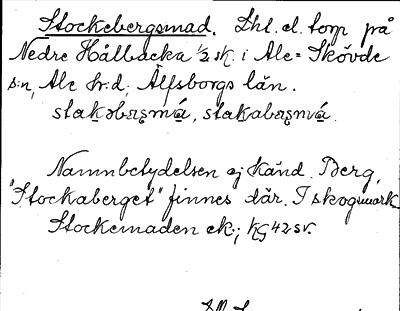 Stockebergsmad. Lht. el. torp på
Nedre Hålbacka 1/2 sk. i Ale-Skövde
s:n, Ale hr:d, Älfsborgs län.
Namnbetydelsen ej känd. Berg,
"Stockaberget" finnes där. I skogsmark
Stockemaden ek.; kg 42 sv.